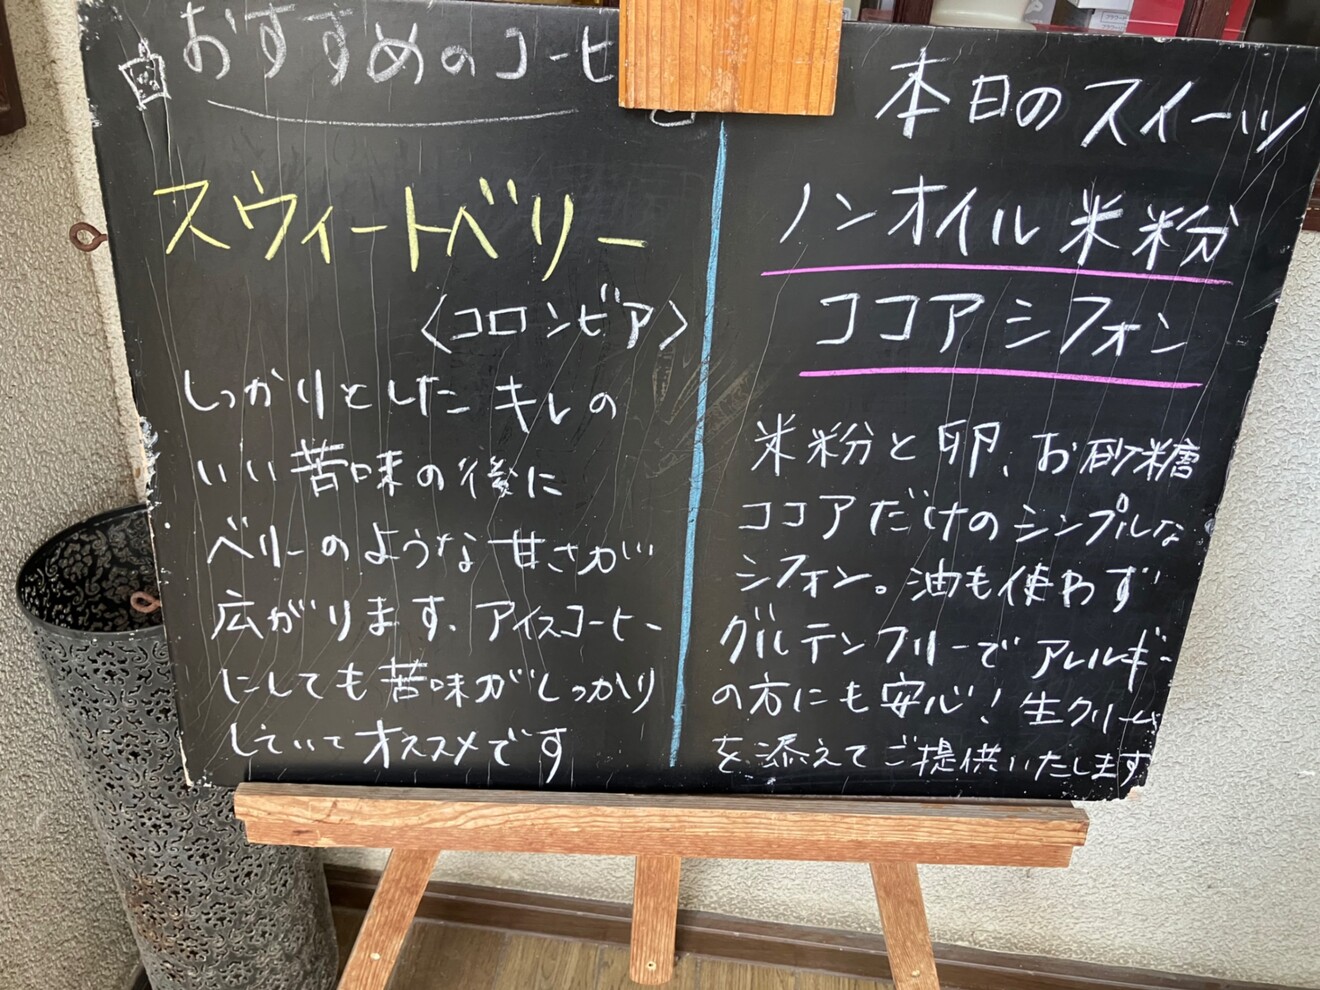 おすすめのコーヒ
スウィートベリー
〈コロンビア〉
しっかりとしたキレの
いい苦味の後に
ベリーのような甘さが
広がります。アイスコーヒー
にしても苦味がしっかり
していてオススメです
本日のスイーツ
ノンオイル米粉
ココアシフォン
米粉と卵、お砂糖
ココアだけのシンプルな
シフォン。油も使わず
グルテンフリーでアレルギー
の方にも安心!生クリーム
を添えてご提供いたします